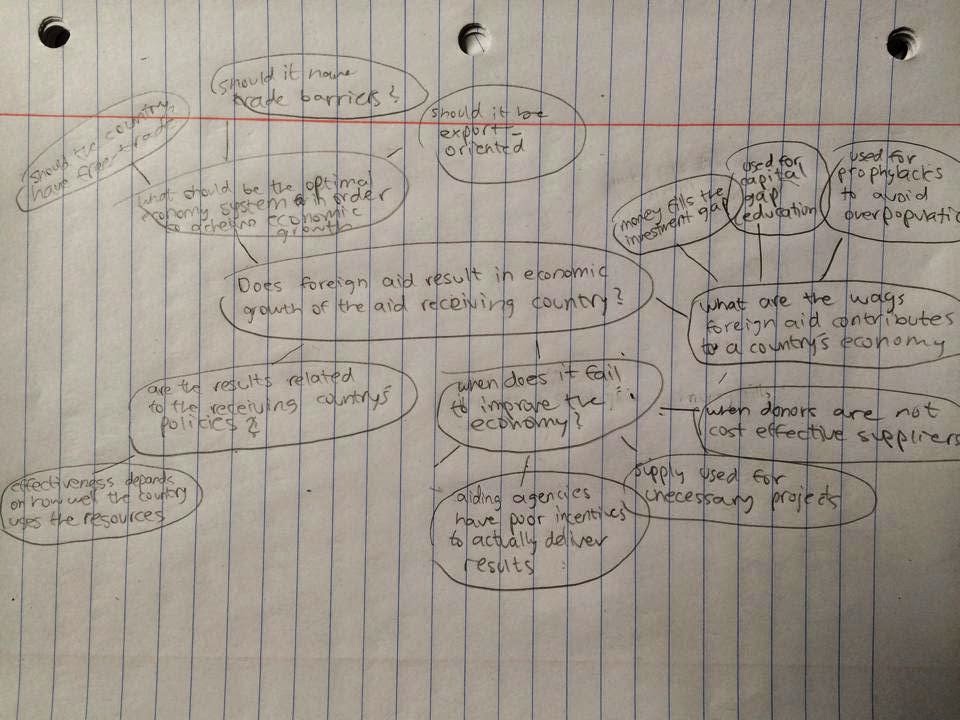 should it have
trade barriers?
should it be
export-
oriented
should the country
have free trade
what should be the optimal
economy system in order
to acheive economic
growth
money fills the
investment gap
used for
capital
gap
education
used for
prophylacks
to avoid
overpopulatio
Does foreign aid result in economic
growth of the aid receiving country?
what are the ways
foreign aid contributes
to a country's economy
are the results related
to the receiving country's
policies?
when does it fail
to improve the
economy?
when donors are not
cost effective suppliers
effectiveness depends
on how well the country
uses the resources
aiding agencies
have poor incentives
to actually deliver
results
supply used for
unecessary projects